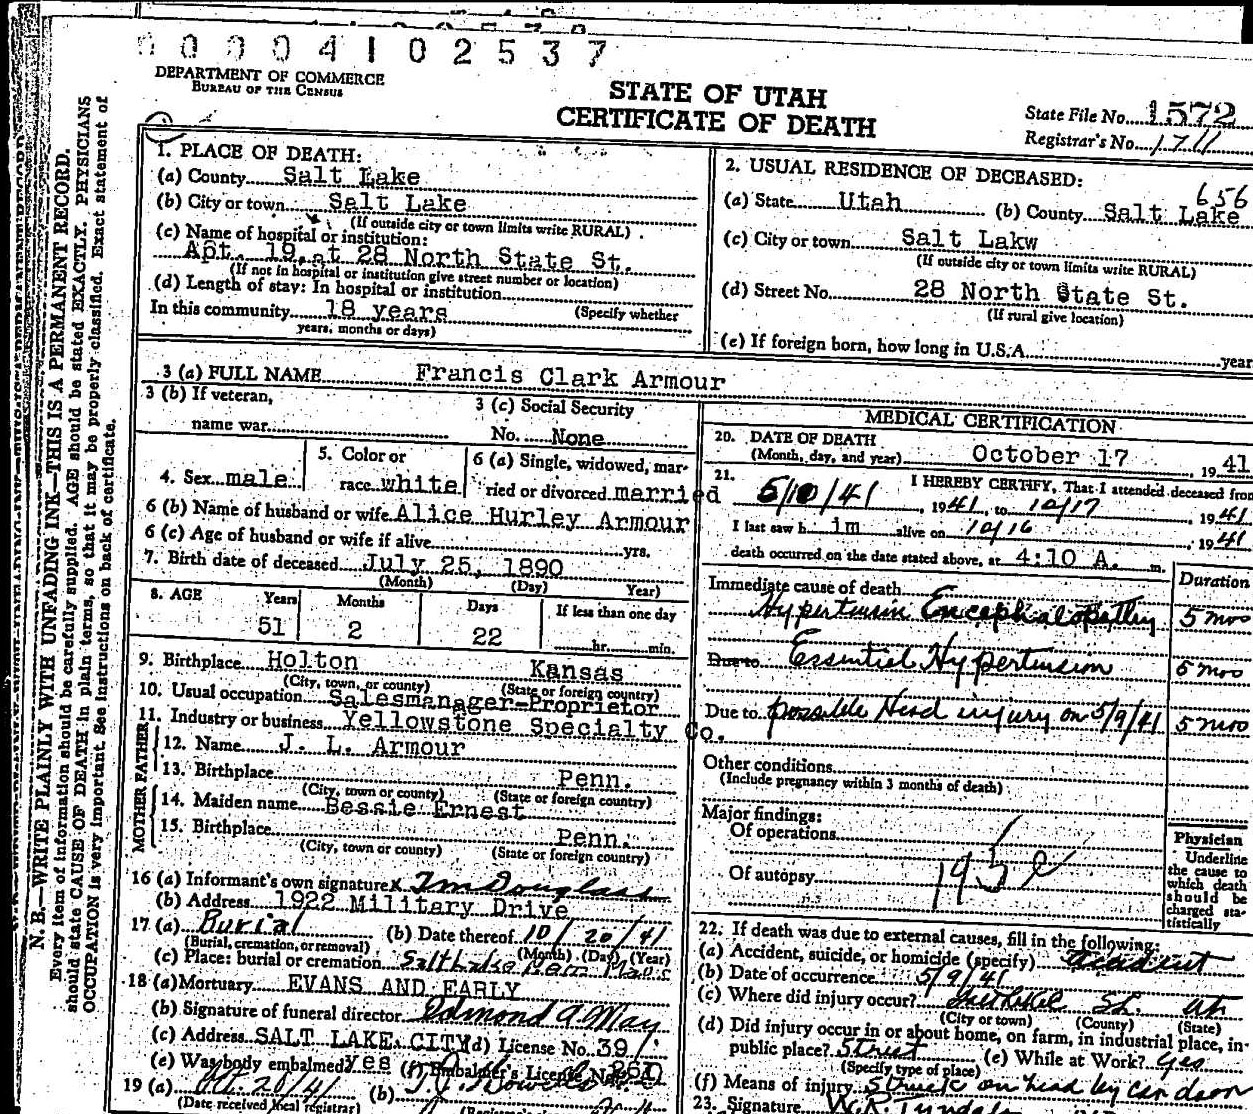 0 0 0 0 4 1 0 2 5 3 7
DEPARTMENT OF COMMERCE
BUREAU OF THE CENSUS
STATE OF UTAH
CERTIFICATE OF DEATH
State File No. 1572
Registrar's No. 1711
N. B.—WRITE PLAINLY WITH UNFADING INK—THIS IS A PERMANENT RECORD.
Every item of information should be carefully supplied. AGE should be stated EXACTLY. PHYSICIANS
should state CAUSE OF DEATH in plain terms, so that it may be properly classified. Exact statement of
OCCUPATION is very important. See instructions on back of certificate.
1. PLACE OF DEATH:
(a) County Salt Lake
(b) City or town Salt Lake
(If outside city or town limits write RURAL)
(c) Name of hospital or institution:
Apt. 19, at 28 North State St.
(If not in hospital or institution give street number or location)
(d) Length of stay: In hospital or institution
In this community 18 years (Specify whether
years, months or days)
2. USUAL RESIDENCE OF DECEASED:
656
(a) State Utah (b) County Salt Lake
(c) City or town Salt Lakw
(If outside city or town limits write RURAL)
(d) Street No. 28 North State St.
(If rural give location)
(e) If foreign born, how long in U.S.A. year
3 (a) FULL NAME Francis Clark Armour
3 (b) If veteran,
name war
3 (c) Social Security
No. None
4. Sex male
5. Color or
race white
6 (a) Single, widowed, mar-
ried or divorced married
6 (b) Name of husband or wife Alice Hurley Armour
6 (c) Age of husband or wife if alive yrs.
7. Birth date of deceased July 25, 1890
(Month) (Day) Year)
8. AGE Years Months Days If less than one day
51 2 22 hr. min.
9. Birthplace Holton Kansas
(City, town, or county) (State or foreign country)
10. Usual occupation Salesmanager-Proprietor
11. Industry or business Yellowstone Specialty Co.
FATHER
12. Name J. L. Armour
13. Birthplace Penn.
(City, town or county) (State or foreign country)
MOTHER
14. Maiden name Bessie Ernest
15. Birthplace Penn.
(City, town or county) (State or foreign country)
16 (a) Informant's own signature x T M Douglass
(b) Address 1922 Military Drive
17 (a) Burial (b) Date thereof 10/20/41
(Burial, cremation, or removal) (Month) (Day) (Year)
(c) Place: burial or cremation Salt Lake
18 (a) Mortuary EVANS AND EARLY
(b) Signature of funeral director Edmond A May
(c) Address SALT LAKE CITY (d) License No. 391
(e) Was body embalmed? yes (f) Embalmer's License No.
19 (a) Oct. 20/41 (b)
(Date received local registrar)
MEDICAL CERTIFICATION
20. DATE OF DEATH
(Month, day, and year) October 17, 1941
21. I HEREBY CERTIFY, That I attended deceased from
5/10/41, 1941, to 10/17, 1941
I last saw h im alive on 10/16, 1941
death occurred on the date stated above, at 4:10 A. m.
Duration
Immediate cause of death
Hypertensin Encephalopathy 5 mos
Due to Essential Hypertension 5 mos
Due to possible Head injury on 5/9/41 5 mos
Other conditions
(Include pregnancy within 3 months of death)
Major findings:
Of operations
Of autopsy
Physician
Underline
the cause to
which death
should be
charged sta-
tistically
22. If death was due to external causes, fill in the following:
(a) Accident, suicide, or homicide (specify) Accident
(b) Date of occurrence 5/9/41
(c) Where did injury occur? Salt Lake S.L. Ut
(City or town) (County) (State)
(d) Did injury occur in or about home, on farm, in industrial place, in
public place? Street (e) While at Work? Yes
(Specify type of place)
(f) Means of injury Struck on head by car door
23. Signature W. R. Tyndale